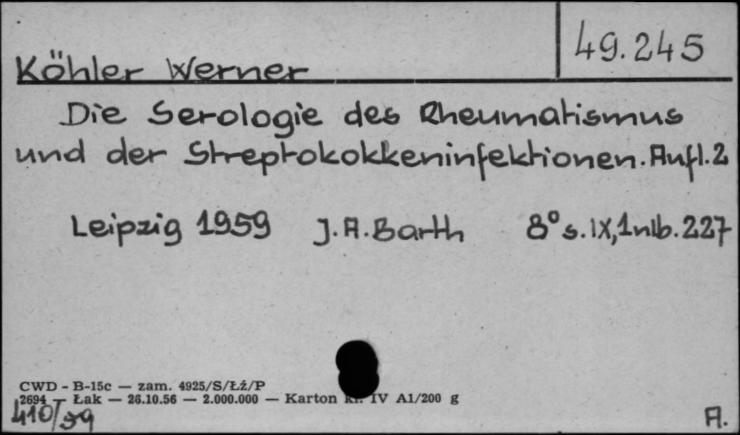 49.245
Köhler Werner
Die Serologie des Rheumatismus
und der Streptokokkeninfektionen. Aufl. 2
Leipzig 1959 J. A. Barth 8° s. IX, 1nlb. 227
CWD - B-15c — zam. 4925/S/Łź/P
2694 — Łak — 26.10.56 — 2.000.000 — Karton kl. IV A1/200 g
410/59
A.